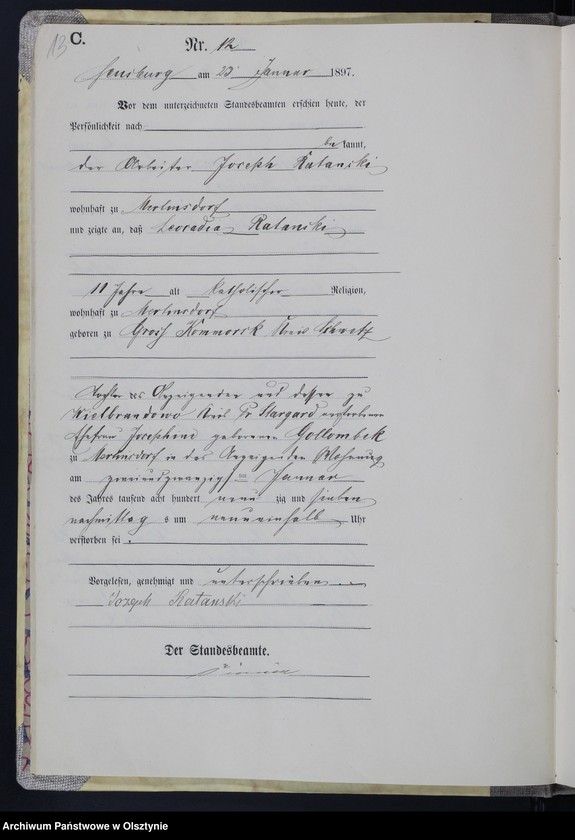 13 C.
Nr. 12
Sensburg am 23 Januar 1897.
Vor dem unterzeichneten Standesbeamten erschien heute, der
Persönlichkeit nach
be kannt,
der Arbeiter Joseph Ratanski
wohnhaft zu
und zeigte an, daß Leocadia Ratanski
11 Jahre alt katholischer Religion,
wohnhaft zu
geboren zu Groß Kommorsk Kreis Schwetz
Tochter des Anzeigenden und dessen zu
Wielbrandowo Kreis Pr Stargard verstorbenen
Ehefrau Josephine geborenen Gollombek
zu in des Anzeigenden Wohnung
am zweiundzwanzigsten Januar
des Jahres tausend acht hundert neun zig und sieben
nachmittag s um neuneinhalb Uhr
verstorben sei .
Vorgelesen, genehmigt und unterschrieben
Jozeph Ratanski
Der Standesbeamte.
Archiwum Państwowe w Olsztynie